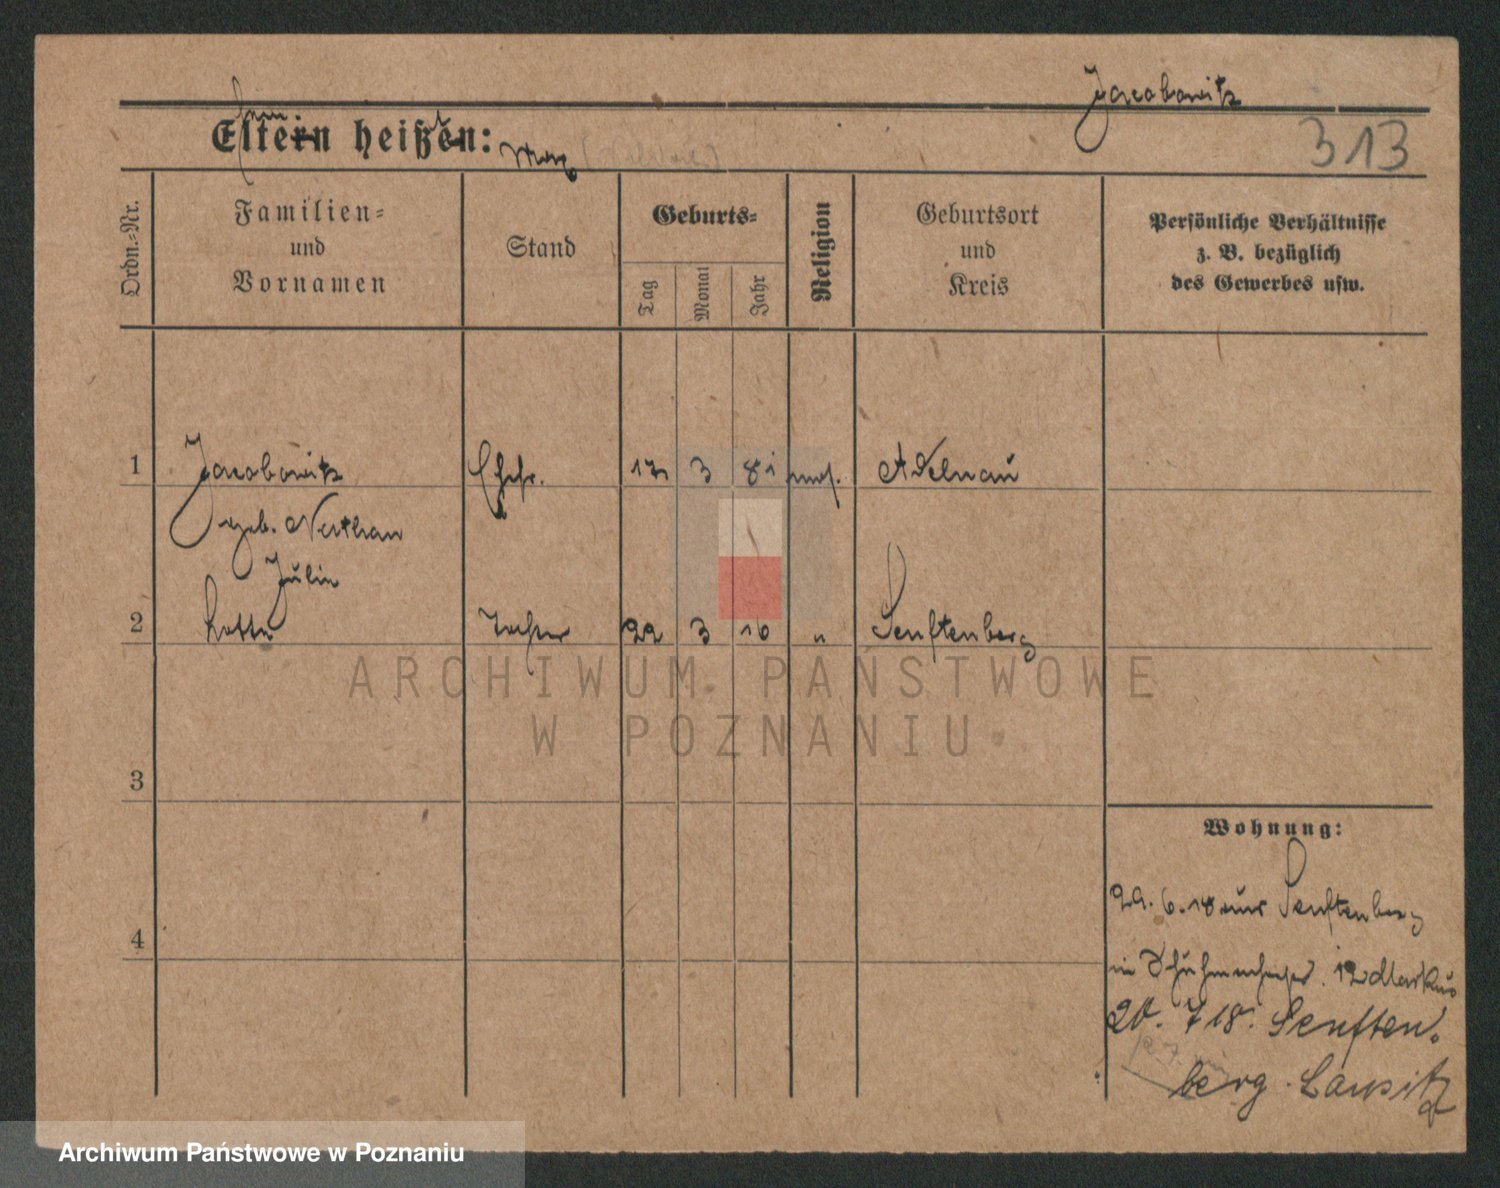 Jacobowitz
Eltern heißen: Max
313
Ordn.-Nr.
Familien-
und
Vornamen
Stand
Geburts-
Tag
Monat
Jahr
Religion
Geburtsort
und
Kreis
Persönliche Verhältnisse
z. B. bezüglich
des Gewerbes usw.
1 Jacobowitz Ehefr. 17 3 81 mos. Adelnau
geb. Nathan
Julie
2 Lotte Tochter 22 3 10 " Senftenberg
ARCHIWUM PAŃSTWOWE
W POZNANIU
3
4
Wohnung:
29. 6. 18 aus Senftenberg
12 Markus
20. 7 18. Senften-
berg. Lausitz
Archiwum Państwowe w Poznaniu